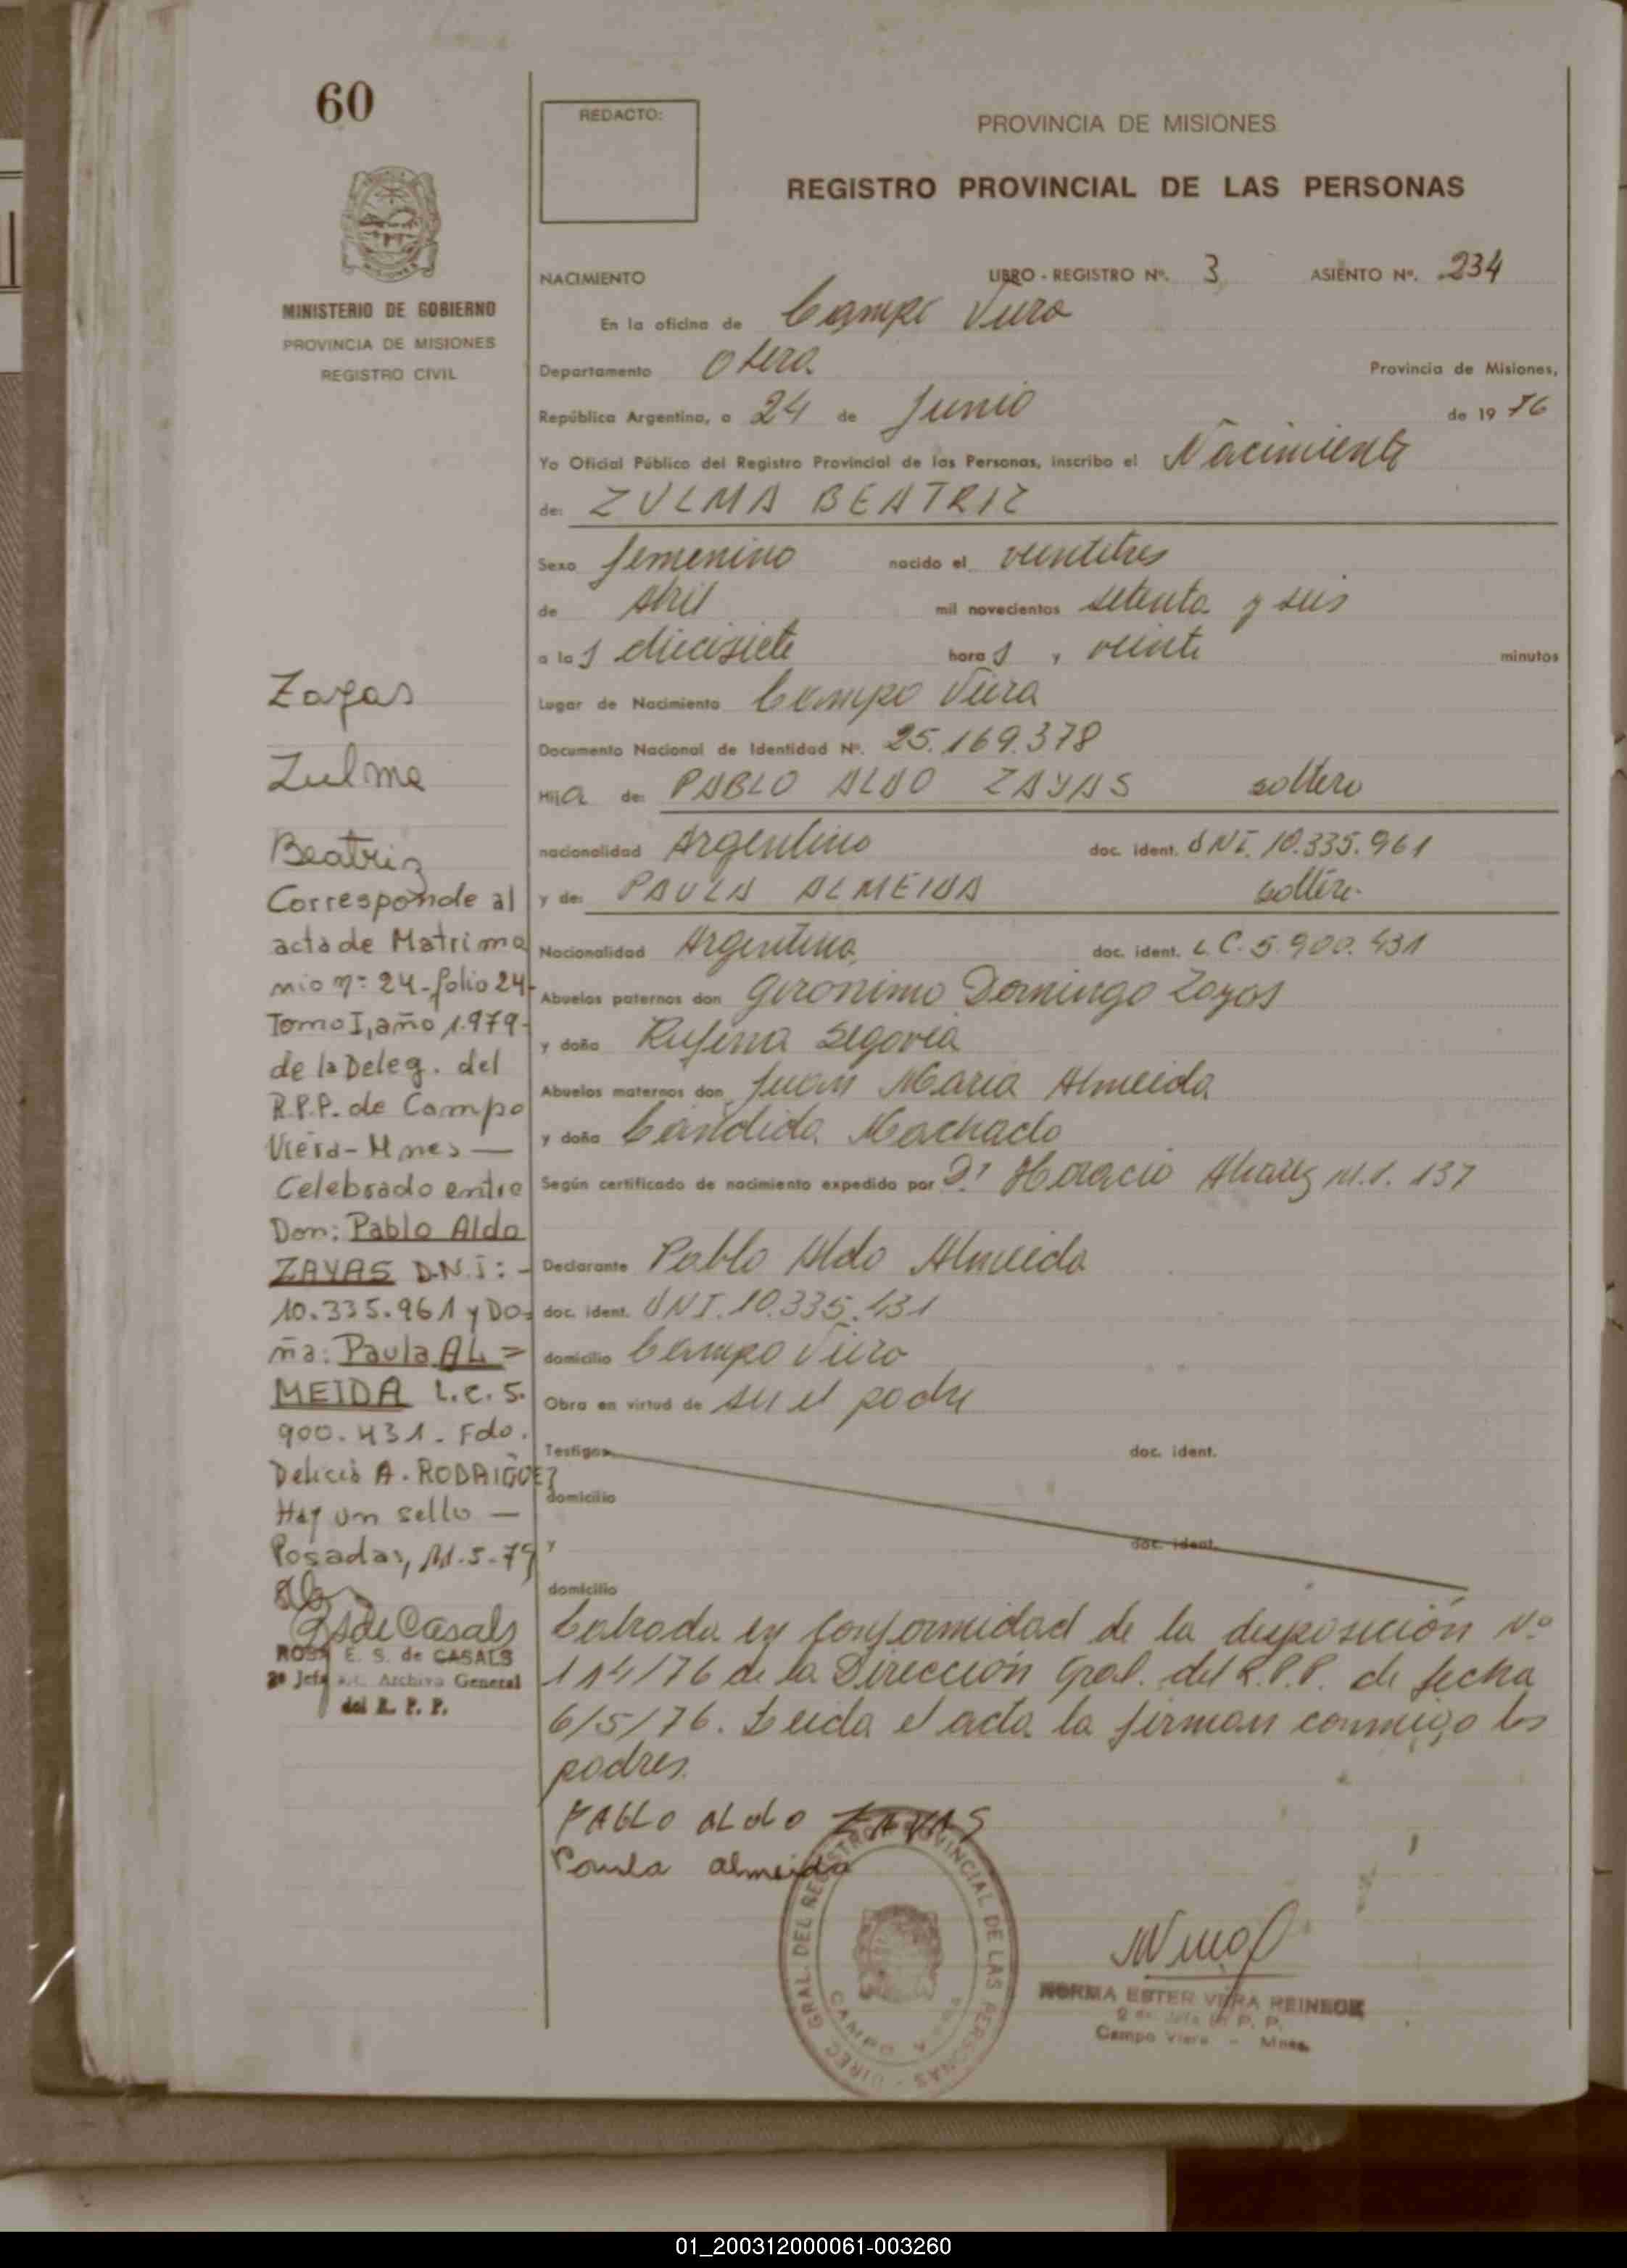 60
REDACTO:
PROVINCIA DE MISIONES
REGISTRO PROVINCIAL DE LAS PERSONAS
MINISTERIO DE GOBIERNO
PROVINCIA DE MISIONES
REGISTRO CIVIL
NACIMIENTO LIBRO - REGISTRO Nº. 3 ASIENTO Nº. 234
En la oficina de Campo Viera
Departamento Obera Provincia de Misiones,
República Argentina, a 24 de Junio de 19 76
Yo Oficial Público del Registro Provincial de las Personas, inscribo el Nacimiento
de: ZULMA BEATRIZ
Sexo femenino nacido el veintitres
de Abril mil novecientos setenta y seis
a las diecisiete horas y veinte minutos
Lugar de Nacimiento Campo Viera
Documento Nacional de Identidad Nº. 25.169.378
Hija de: PABLO ALDO ZAYAS soltero
nacionalidad Argentino doc. ident. DNI. 10.335.961
y de: PAULA ALMEIDA soltera
Nacionalidad Argentina doc. ident. L.C. 5.900.431
Abuelos paternos don Geronimo Domingo Zayas
y doña Rufina Segovia
Abuelos maternos don Juan Maria Almeida
y doña Candida Machado
Según certificado de nacimiento expedido por Dr Horacio Alvarez M.P. 137
Declarante Pablo Aldo Almeida
doc. ident. DNI. 10.335.431
domicilio Campo Viera
Obra en virtud de ser el padre
Testigos doc. ident.
domicilio
y doc. ident.
domicilio
Labrada en conformidad de la disposición Nº
114/76 de la Dirección Gral. del R.P.P. de fecha
6/5/76. Leida el acta la firman conmigo los
padres.
PABLO ALdO ZAYAS
Paula almeida
Zayas
Zulma
Beatriz
Corresponde al
acta de Matrimo
nio nº 24-folio 24-
Tomo I, año 1.979-
de la Deleg. del
R.P.P. de Campo
Viera-Mnes —
Celebrado entre
Don: Pablo Aldo
ZAYAS D.N.I: -
10.335.961 y Do-
ña: Paula AL =
MEIDA L.C. 5.
900.431. Fdo.
Delicia A. RODRIGUEZ
Hay un sello —
Posadas, 11-5-79
RSdeCasals
ROSA E. S. de CASALS
2ª Jefa Archivo General
del R. P. P.
DIREC. GRAL. DEL REGISTRO PROVINCIAL DE LAS PERSONAS
CAMPO VIERA
NORMA ESTER VERA REINECK
R. P. P.
Campo Viera - Mnes.
01_200312000061-003260